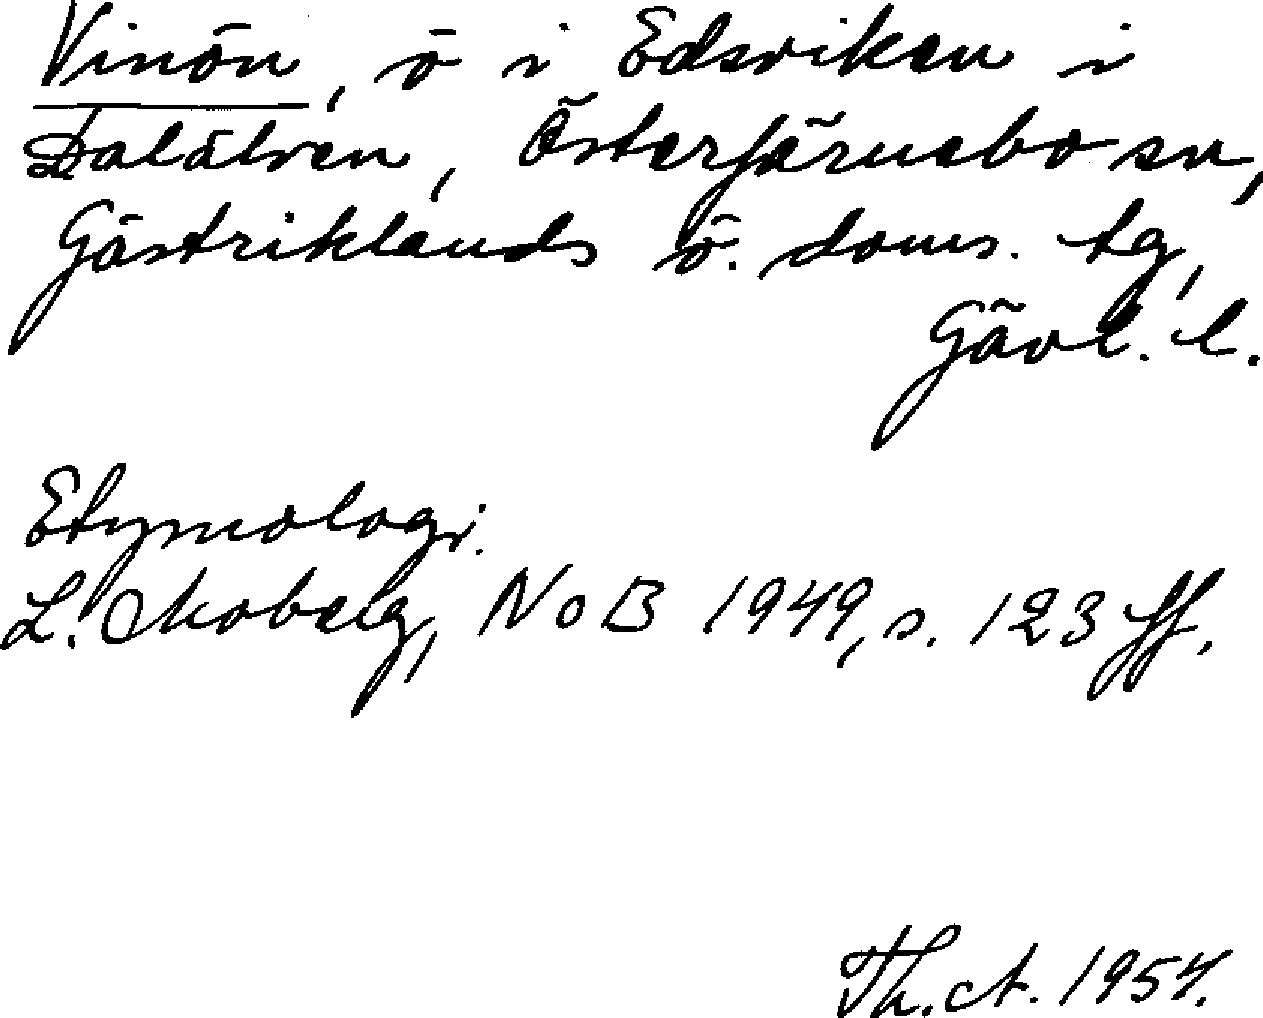 Vinön, ö i Edsviken i
Dalälven, Österfärnebo sn,
Gästriklands ö. doms. tg,
Gävl. l.
Etymologi.
L. Moberg, NoB 1949, s. 123 ff.
Th. A. 1954.